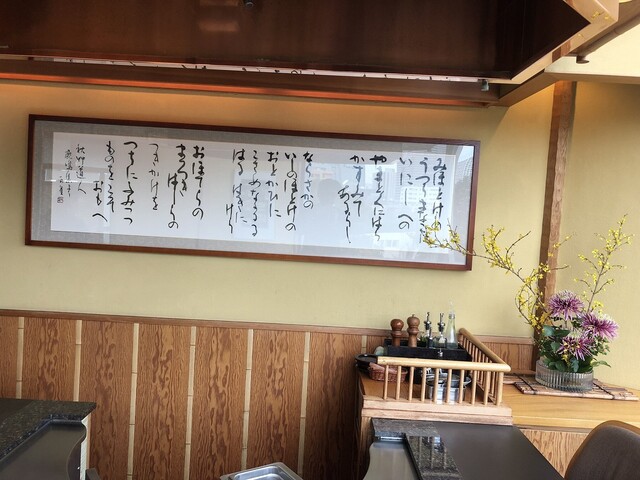 みほとけの
うつらまなこに
いにしへの
やまとくにはら
かすみて
あるらし
ならさかの
いしのほとけの
おとかひに
こさめなかるる
はるはきに
けり
おほてらの
まろき
はしらの
つきかけを
つちにふみつつ
ものをこそ
おもへ
秋艸道人